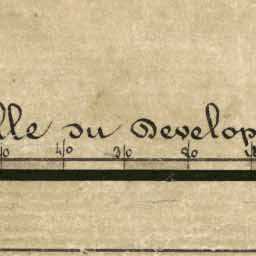 lle du Develop
40 30 80